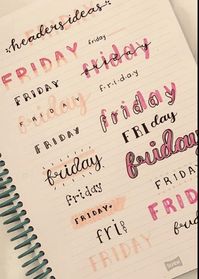 headers ideas
FRIDAY
friday
friday
friday
FRIDAY
friday
FRIDAY
friday
FRIDAY
FRIday
friday
friday
friday
friday
FRIDAY
friday
fri
friday
FRIDAY